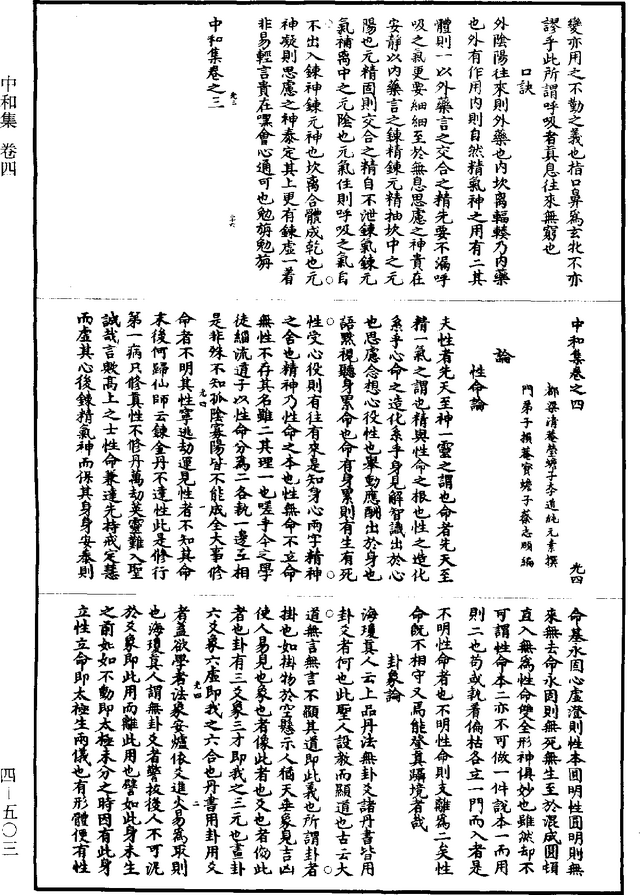 中和集　卷四
四－五〇三
變亦用之不勤之義也指口鼻爲玄牝不亦
謬乎此所謂呼吸者眞息往來無窮也
口訣
外陰陽往來則外藥也內坎离輻輳乃內藥
也外有作用內則自然精氣神之用有二其
體則一以外藥言之交合之精先要不漏呼
吸之氣更要細細至於無息思慮之神貴在
安靜以內藥言之鍊精鍊元精抽坎中之元
陽也元精固則交合之精自不泄鍊氣鍊元
氣補离中之元陰也元氣住則呼吸之氣自
不出入鍊神鍊元神也坎离合體成乾也元
神凝則思慮之神泰定其上更有鍊虛一着
非易輕言貴在嘿會心通可也勉旃勉旃
中和集卷之三
中和集卷之四　光四
都梁清菴瑩蟾子李道純元素撰
門弟子損菴寶蟾子蔡志頤編
論
性命論
夫性者先天至神一靈之謂也命者先天至
精一氣之謂也精與性命之根也性之造化
系乎心命之造化系乎身見解智識出於心
也思慮念想心役性也舉動應酬出於身也
語默視聽身累命也命有身累則有生有死
性受心役則有往有來是知身心兩字精神
之舍也精神乃性命之本也性無命不立命
無性不存其名雖二其理一也嗟乎今之學
徒緇流道子以性命分爲二各執一邊互相
是非殊不知孤陰寡陽皆不能成全大事修
命者不明其性寧逃劫運見性者不知其命
末後何歸仙師云鍊金丹不達性此是修行
第一病只修真性不修丹萬劫英靈難入聖
誠哉言歟高上之士性命兼達先持戒定慧
而虛其心後鍊精氣神而保其身身安泰則
命基永固心虛澄則性本圓明性圓明則無
來無去命永固則無死無生至於混成圓頓
直入無爲性命雙全形神俱妙也雖然却不
可謂性命本二亦不可做一件說本一而用
則二也苟或執着偏枯各立一門而入者是
不明性命者也不明性命則支離爲二矣性
命既不相守又焉能登真躡境者哉
卦象論
海瓊真人云上品丹法無卦爻諸丹書皆用
卦爻者何也此聖人設教而顯道也古云大
道無言無言不顯其道即此義也所謂卦者
掛也如掛物於空懸示人猶天垂象見吉凶
使人易見也象也者像此者也爻也者效此
者也卦有三爻象三才即我之三元也畫卦
六爻象六虛即我之六合也丹書用卦用爻
者蓋欲學者法象安爐依爻進火易爲取則
也海瓊真人謂無卦爻者警拔後人不可泥
於爻象即此用而離此用也譬如此身未生
之前如如不動即太極未分之時因有此身
立性立命即太極生兩儀也有形體便有性